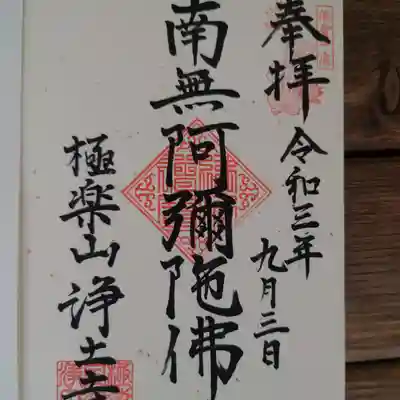 奉拝
令和三年
九月三日
南無阿彌陀佛
極楽山 浄土寺